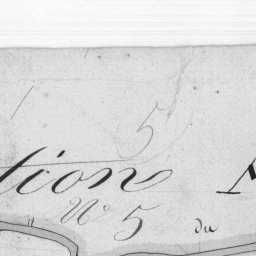 5
tion
N° 5 du